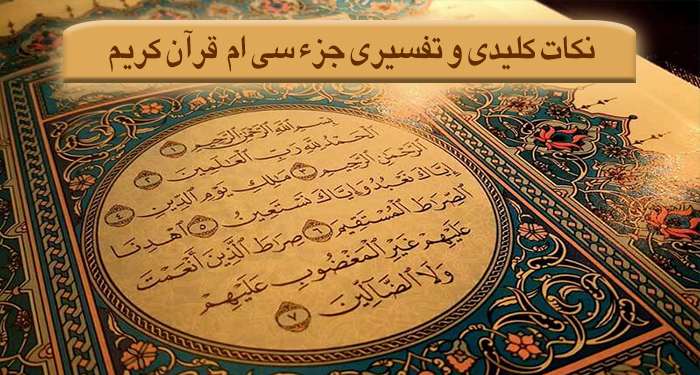 نکات کلیدی و تفسیری جزء سی ام قرآن کریم
بِسْمِ اللَّهِ الرَّحْمَٰنِ الرَّحِيمِ ١
الْحَمْدُ لِلَّهِ رَبِّ الْعَالَمِينَ ٢
الرَّحْمَٰنِ الرَّحِيمِ ٣ مَالِكِ يَوْمِ الدِّينِ ٤
إِيَّاكَ نَعْبُدُ وَإِيَّاكَ نَسْتَعِينُ ٥ اهْدِنَا
الصِّرَاطَ الْمُسْتَقِيمَ ٦ صِرَاطَ الَّذِينَ أَنْعَمْتَ
عَلَيْهِمْ غَيْرِ الْمَغْضُوبِ عَلَيْهِمْ
وَلَا الضَّالِّينَ ٧